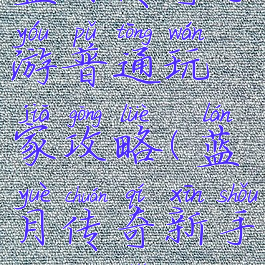 yóu pǔ tōng wán
游普通玩
jiā gōng lüè lán
家攻略(蓝
yuè chuán qí xīn shǒu
月传奇新手